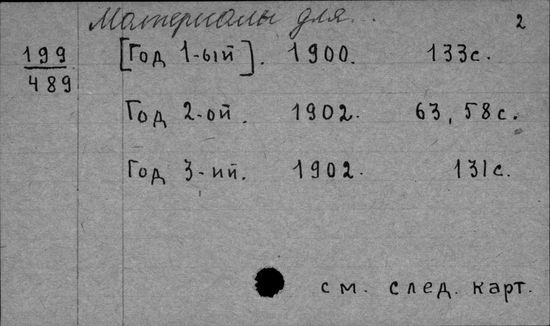 Материалы для... 2
199
489
[Год 1-ый]. 1900. 133с.
Год 2-ой. 1902. 63, 58с.
Год 3-ий. 1902. 131с.
см. след. карт.